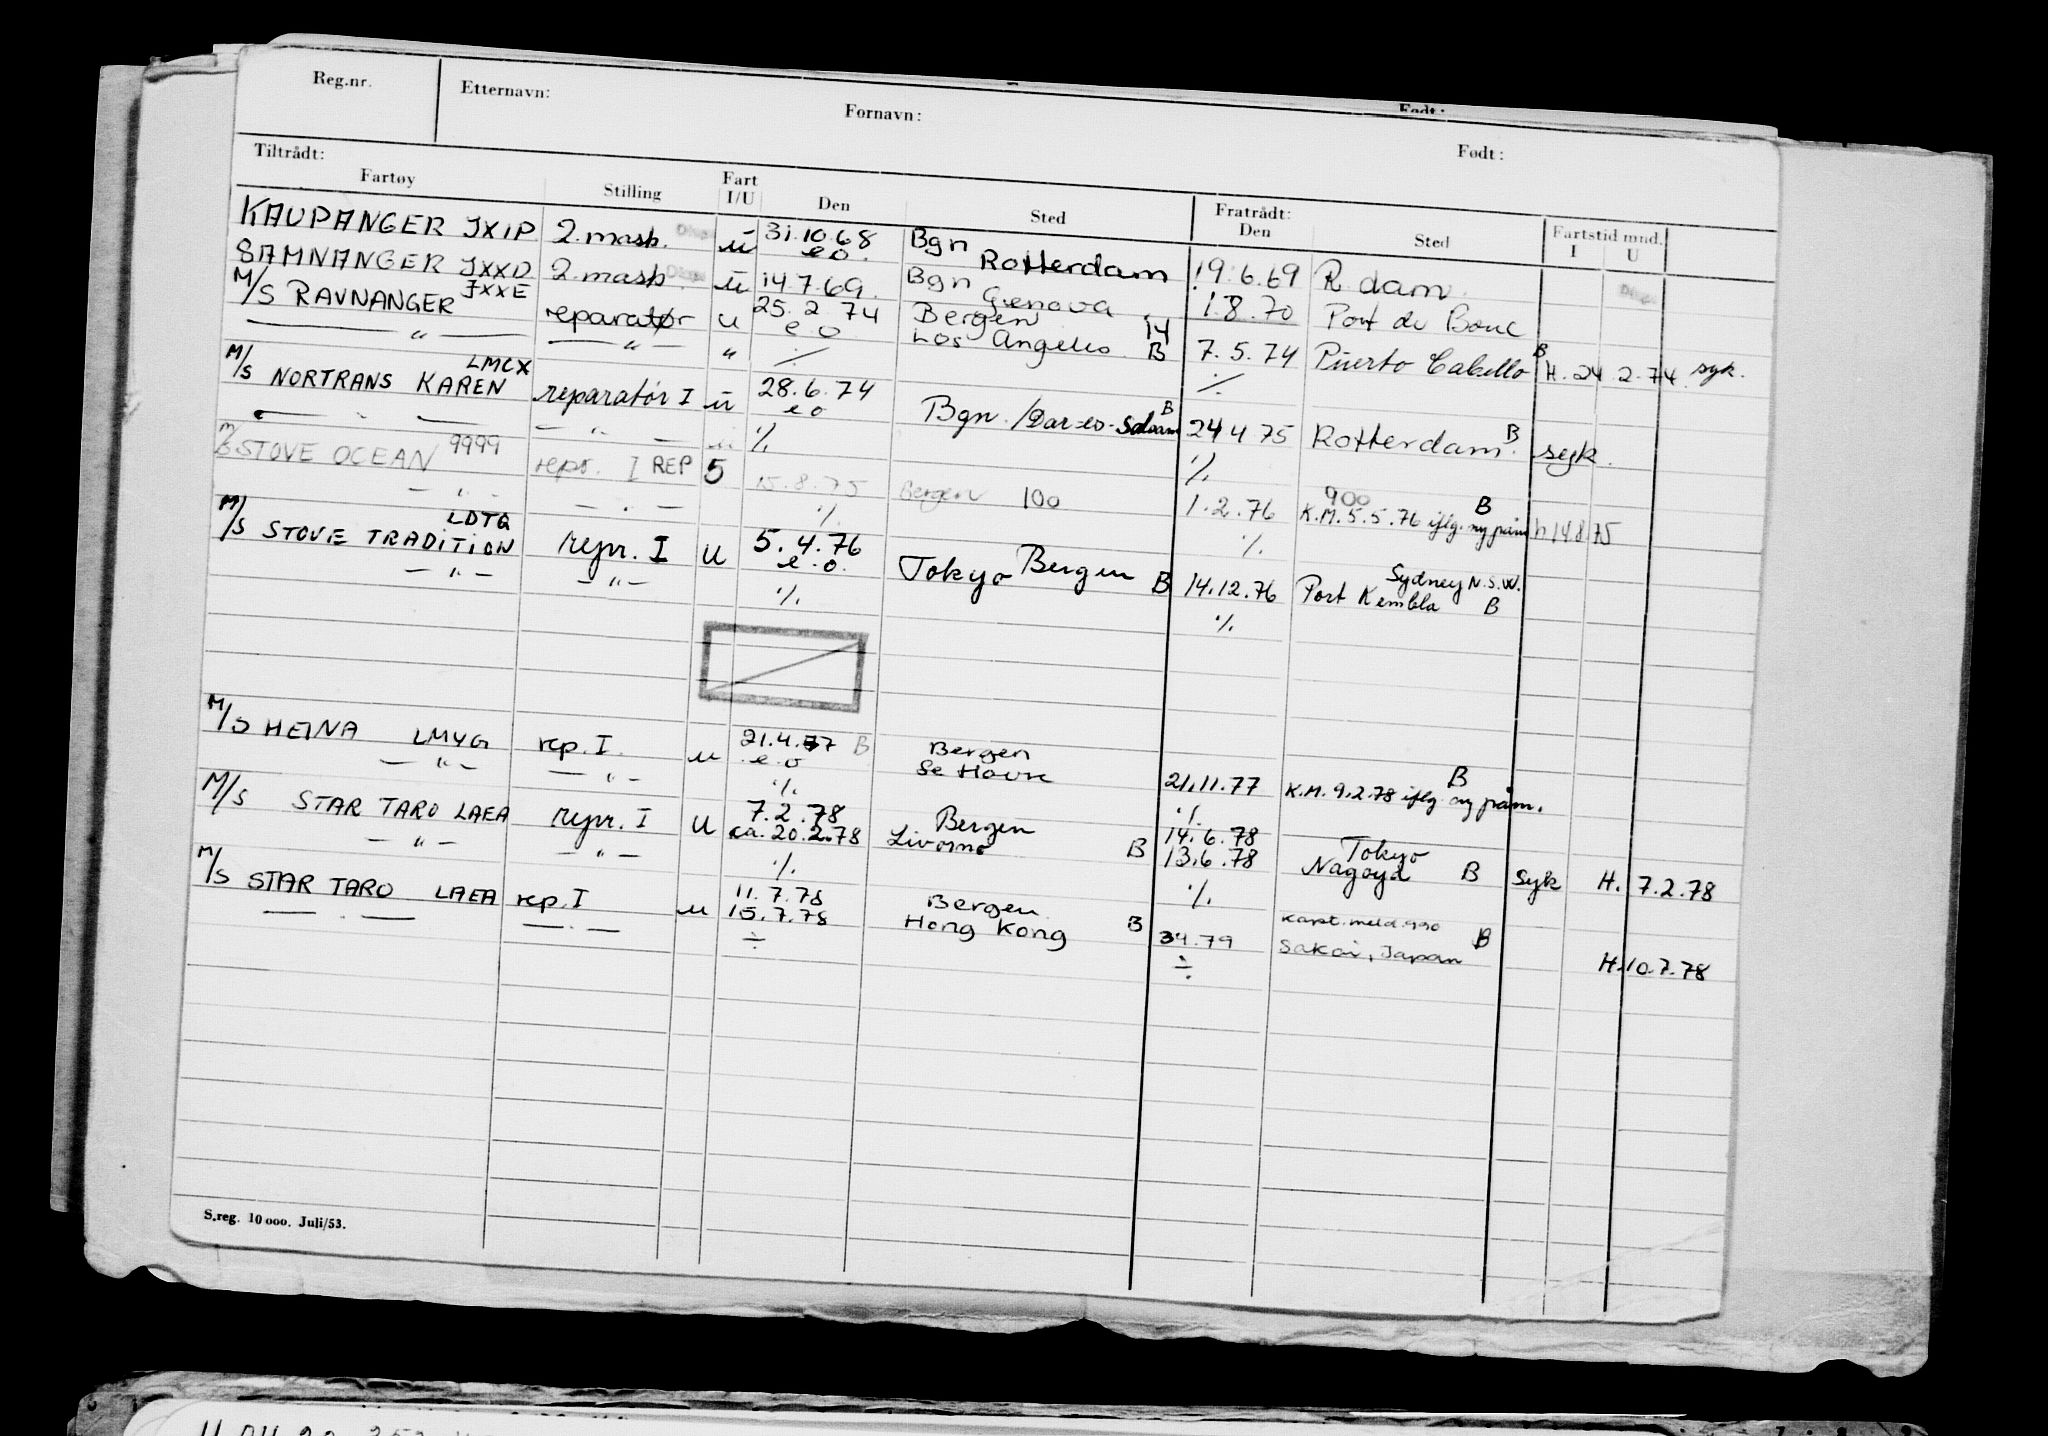 Reg.nr. Etternavn: Fornavn: Født:
Født:
Tiltrådt: Fratrådt: Fartstid mnd.
Fartøy Stilling Fart I/U Den Sted Den Sted I U
KAUPANGER JXIP 2. mask. u 31.10.68 Bgn
e o. Rotterdam 19.6.69 R.dam
SAMNANGER JXXD 2. mask. u 14.7.69. Bgn
Genova 1.8.70 Port de Bouc
M/S RAVNANGER JXXE reparatør u 25.2.74 Bergen 14
— " — — " — " e o Los Angeles B 7.5.74 Puerto Cabello B H. 24.2.74 syk.
M/S NORTRANS KAREN LMCX reparatør I u 28.6.74 ./.
e o Bgn. /Dar-es-Salaam B 24 4 75 Rotterdam B syk.
— " — — " — u ./. ./.
M/S STOVE OCEAN 9999 repr. I REP 5 15.8.75 Bergen 100 1.2.76 900 B
K.M. 5.5.76 iflg. ny påm h 14 8 75
— " — — " — ./. ./.
M/S STOVE TRADITION LDTQ repr. I U 5.4.76 Bergen Sydney N.S.W.
e.o. Tokyo B 14.12.76 Port Kembla B
— " — — " — ./. ./.
M/S HEINA LMYG rep. I. u 21.4.77 B Bergen
e.o Le Havre 21.11.77 K.M. 9.2.78 iflg. ny påm. B
— " — — " — ./. ./.
M/S STAR TARO LAEA repr. I U 7.2.78 Bergen 14.6.78 Tokyo
ca. 20.2.78 Livorno B 13.6.78 Nagoya B syk H. 7.2.78
— " — — " — ./. ./.
M/S STAR TARO LAEA rep. I u 11.7.78 Bergen kapt. meld. 990
15.7.78 Hong Kong B 3 4.79 Sakai, Japan B H. 10.7.78
— " — — " — ÷ ÷
S.reg. 10 000. Juli/53.